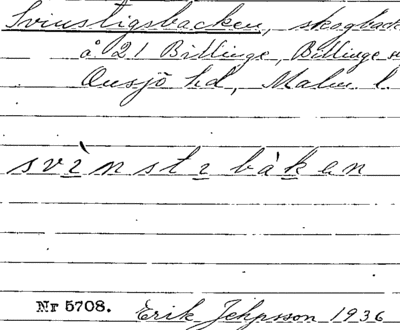 Svinstigsbacken, skogback
å 21 Billinge, Billinge
Onsjö hd, Malm. l.
svìnstɩbàkan
Nr 5708. Erik Jeppsson 1936